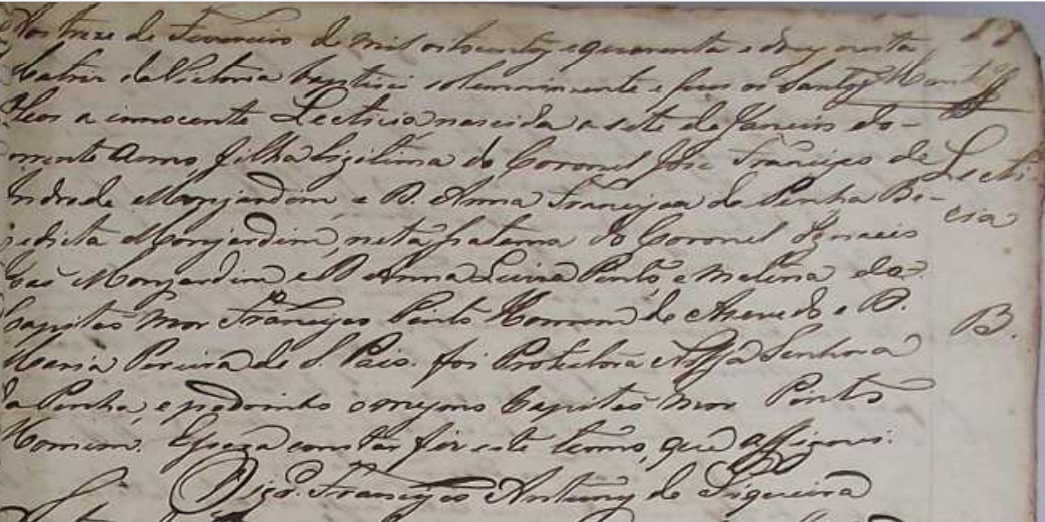 17
Aos treze de Fevereiro de mil oitocentos e quarenta e dous nesta
Matriz da Victoria baptisei solemnemente e puz os Santos
Oleos a innocente Lecticia nascida a sete de Janeiro do
mente Anno, filha legitima do Coronel José Francisco de
Lecti-
Andrade Monjardim, e D. Anna Francisca da Penha Be-
cia
nedicta Monjardim, neta paterna do Coronel Ignacio
Monjardim e D Anna Luiza Pinto, e materna do
Capitão mor Francisco Pinto Homem de Azevedo e D.
B.
Maria Pereira de S. Paio. foi Protectora Nossa Senhora
da Penha, e padrinho o mesmo Capitão Mor Pinto
Homem. E para constar fiz este termo, que assignei.
Francisco Antunes de Siqueira